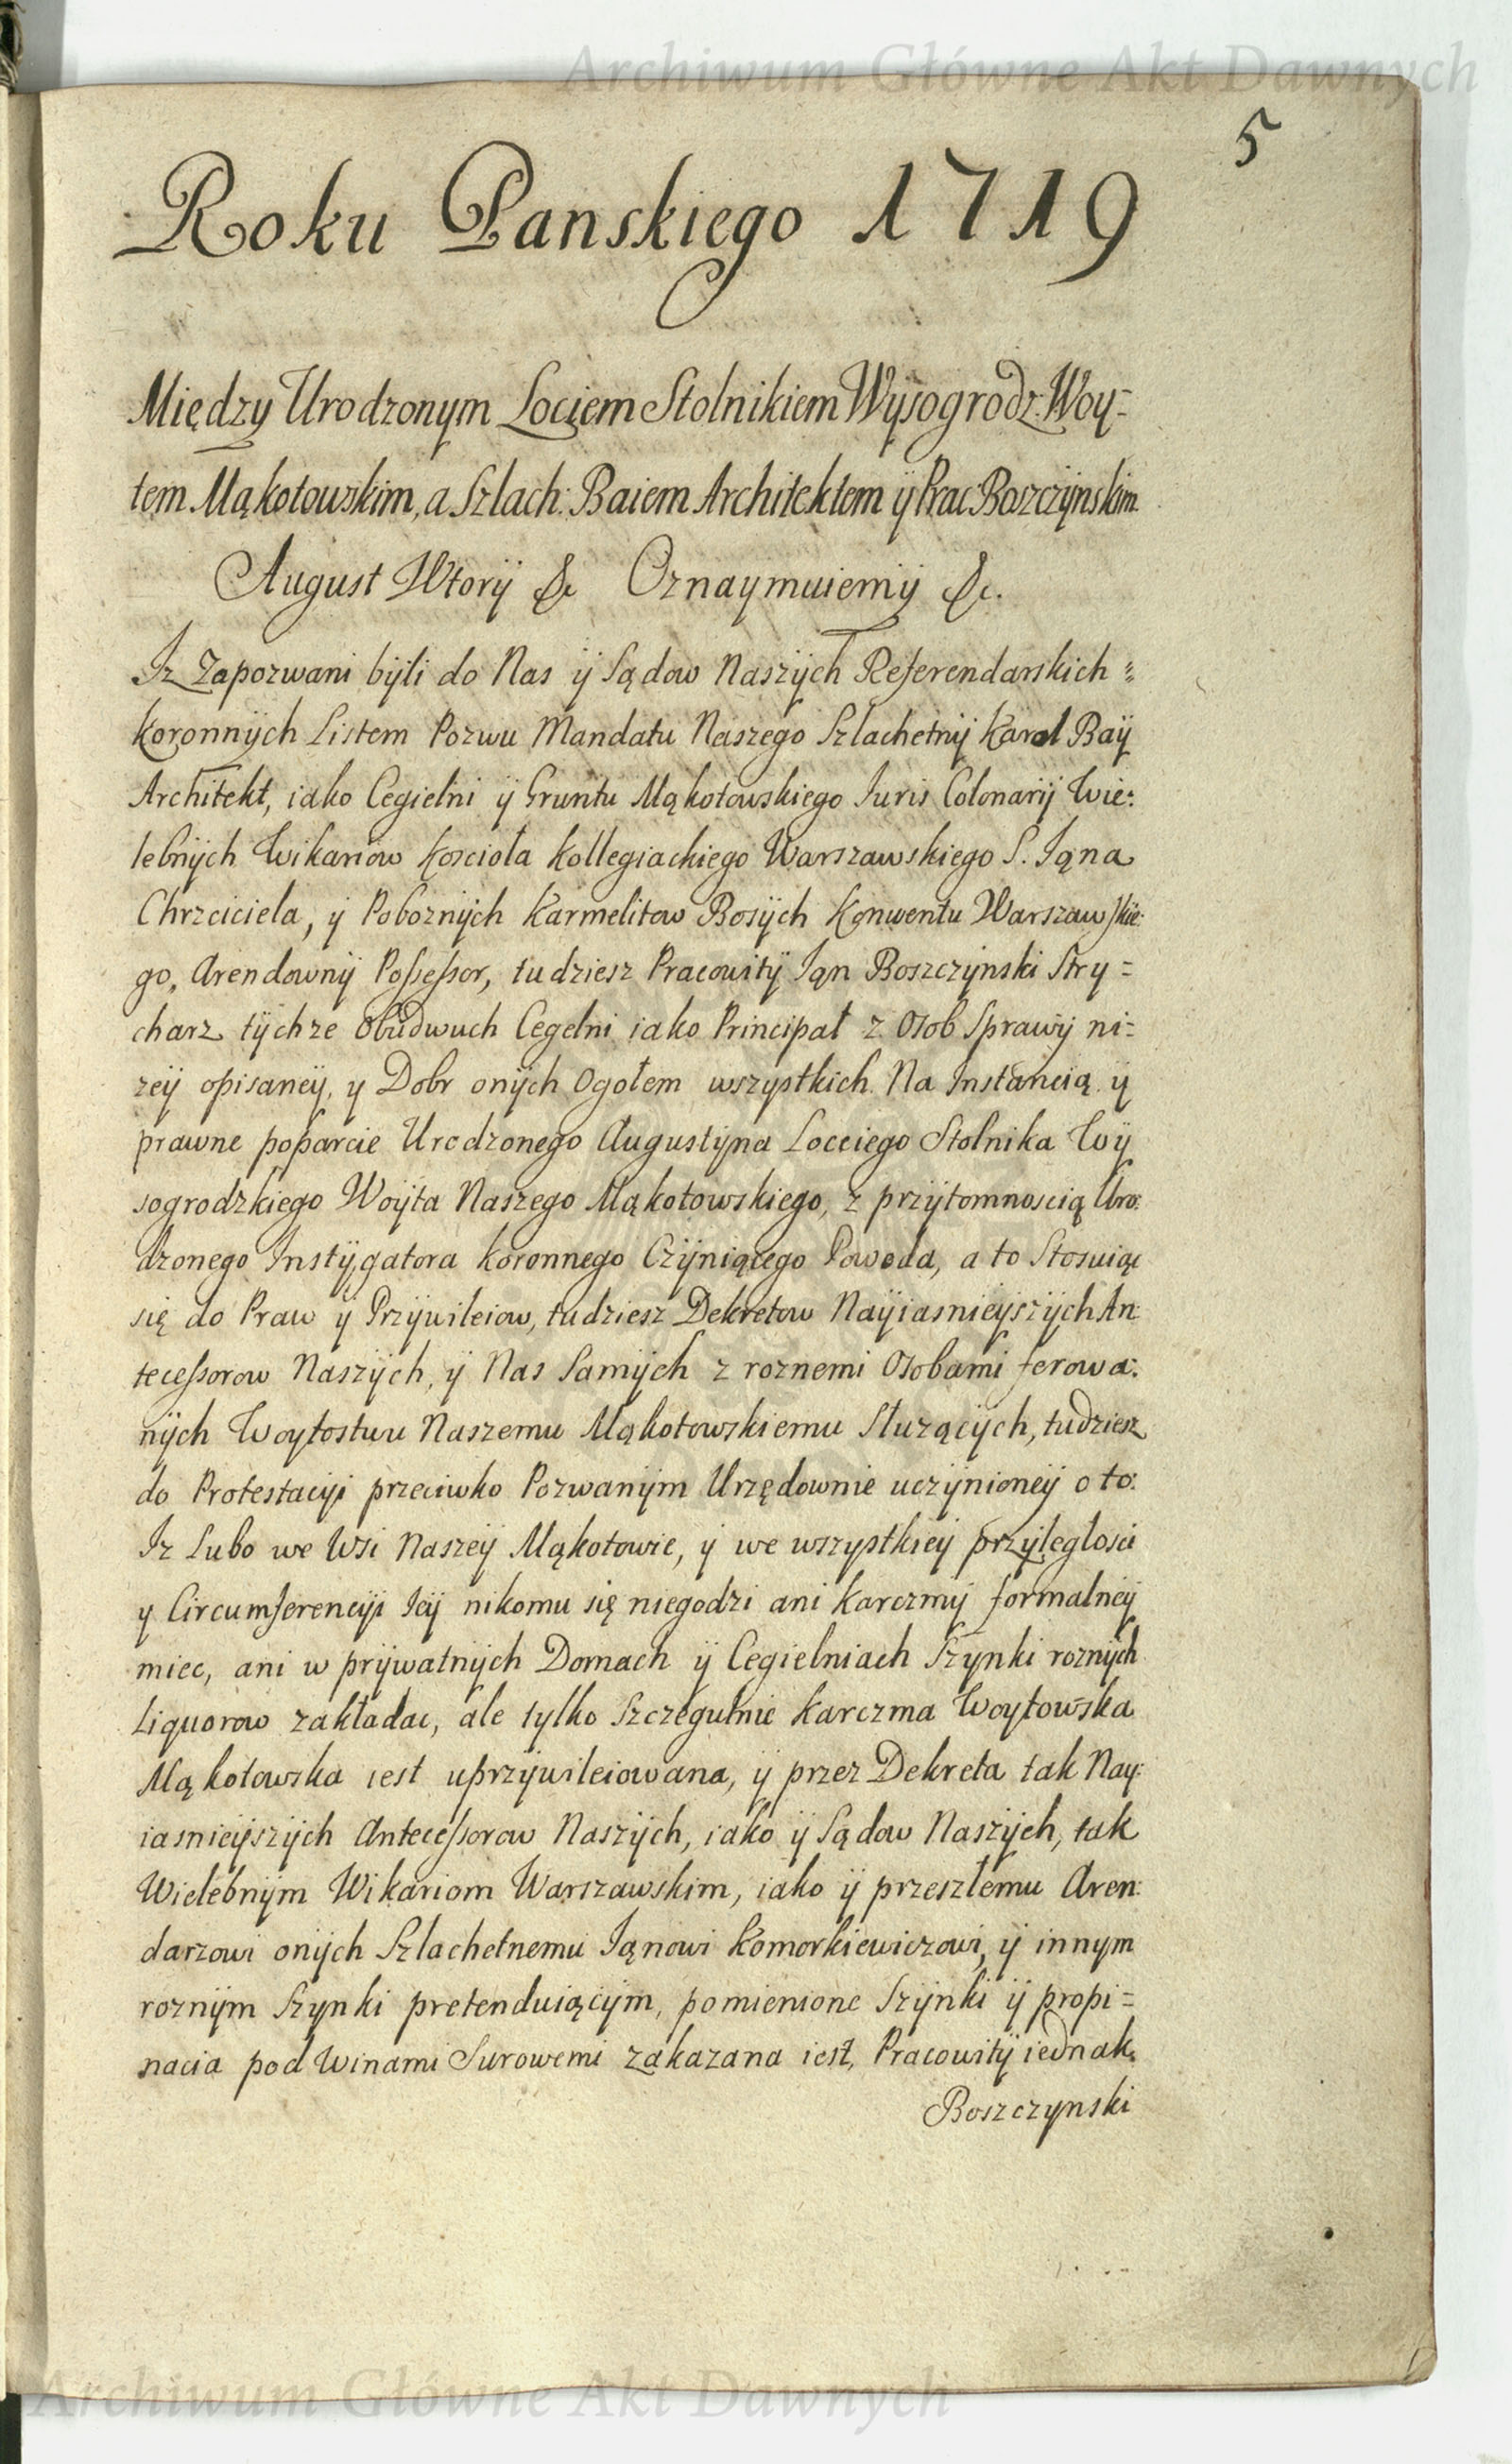 Archiwum Główne Akt Dawnych
5
Roku Panskiego 1719
Między Urodzonym Lociem Stolnikiem Wysogrodz: Woy=
tem Mąkotowskim, a Szlach: Baiem Architektem ÿ Prac: Boszczÿnskim
August Wtorÿ &c Oznaymuiemÿ &c.
Iz Zapozwani bÿli do Nas ÿ Sądow Naszÿch Referendarskich =
koronnÿch Listem Pozwu Mandatu Naszego Szlachetnÿ Karol Baÿ
Architekt, iako Cegielni ÿ Gruntu Mąkotowskiego Iuris Colonarij Wie:
lebnÿch Wikariow Koscioła Kollegiackiego Warszawskiego S. Iąna
Chrzciciela, ÿ Poboznÿch Karmelitow Bosÿch Konwentu Warszawskie:
go, Arendownÿ Possessor, tudziesz Pracowitÿ Iąn Boszczÿnski Stry=
charz tÿchze obudwuch Cegelni iako Principał z Osob Sprawÿ ni=
zeÿ opisaneÿ, y Dobr onÿch Ogołem wszystkich. Na Instancią y
prawne poparcie Urodzonego Augustÿna Locciego Stolnika Wÿ
sogrodzkiego Woÿta Naszego Mąkotowskiego, z przÿtomnoscią Uro:
dzonego Instÿgatora koronnego Czÿniącego Powoda, a to Stosuiąc
się do Praw ÿ Przÿwileiow, tudziesz Dekretow NaÿiasnieÿszÿchAn:
tecessorow Naszÿch, ÿ Nas Samÿch z roznemi Osobami ferowa:
nÿch Woytostwu Naszemu Mąkotowskiemu Słuzącÿch, tudziesz
do Protestacÿi przeciwko Pozwanÿm Urzędownie uczÿnioneÿ o to:
Iz Lubo we Wsi Naszeÿ Mąkotowie, ÿ we wszystkieÿ przÿległosci
y Circumferencÿi Ieÿ nikomu się niegodzi ani Karczmÿ formalneÿ
miec, ani w prÿwatnÿch Domach ÿ Cegielniach Szynki roznÿch
Liquorow zakładac, ale tylko Szczegulnie Karczma Woytowska
Mąkotowska iest uprzÿwileiowana, ÿ przez Dekreta tak Nay:
iasnieÿszÿch Antecessorow Naszÿch, iako ÿ Sądow Naszÿch, tak
Wielebnÿm Wikariom Warszawskim, iako ÿ przeszłemu Aren:
darzowi onÿch Szlachetnemu Iąnowi Komorkiewiczowi, ÿ innym
roznÿm Szynki pretenduiącÿm, pomienione Szÿnki ÿ propi=
nacia pod Winami Surowemi zakazana iest, Pracowitÿ iednak
Boszczynski
Archiwum Główne Akt Dawnych